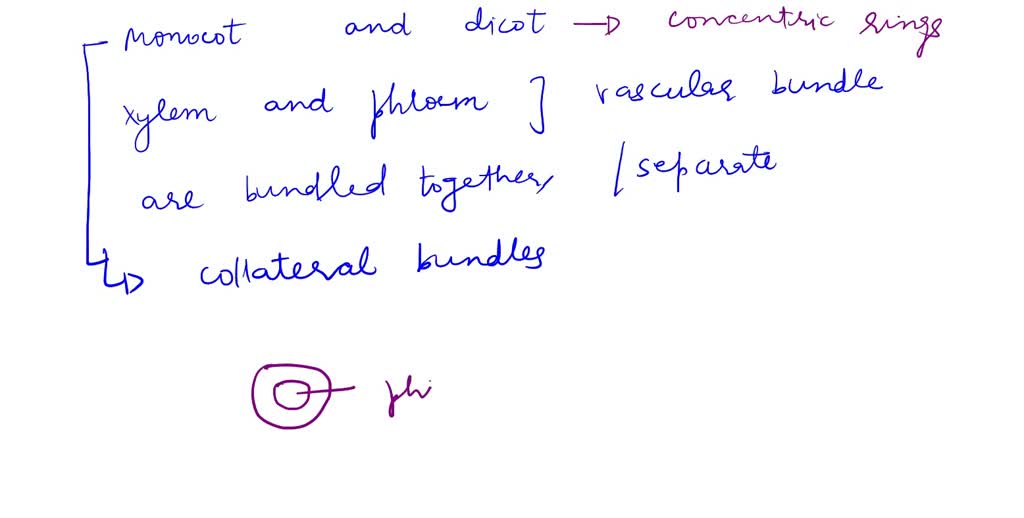 Monocot and dicot → concentric rings
xylem and phloem ] vascular bundle
are bundled together, / separate
↳ collateral bundles
phl